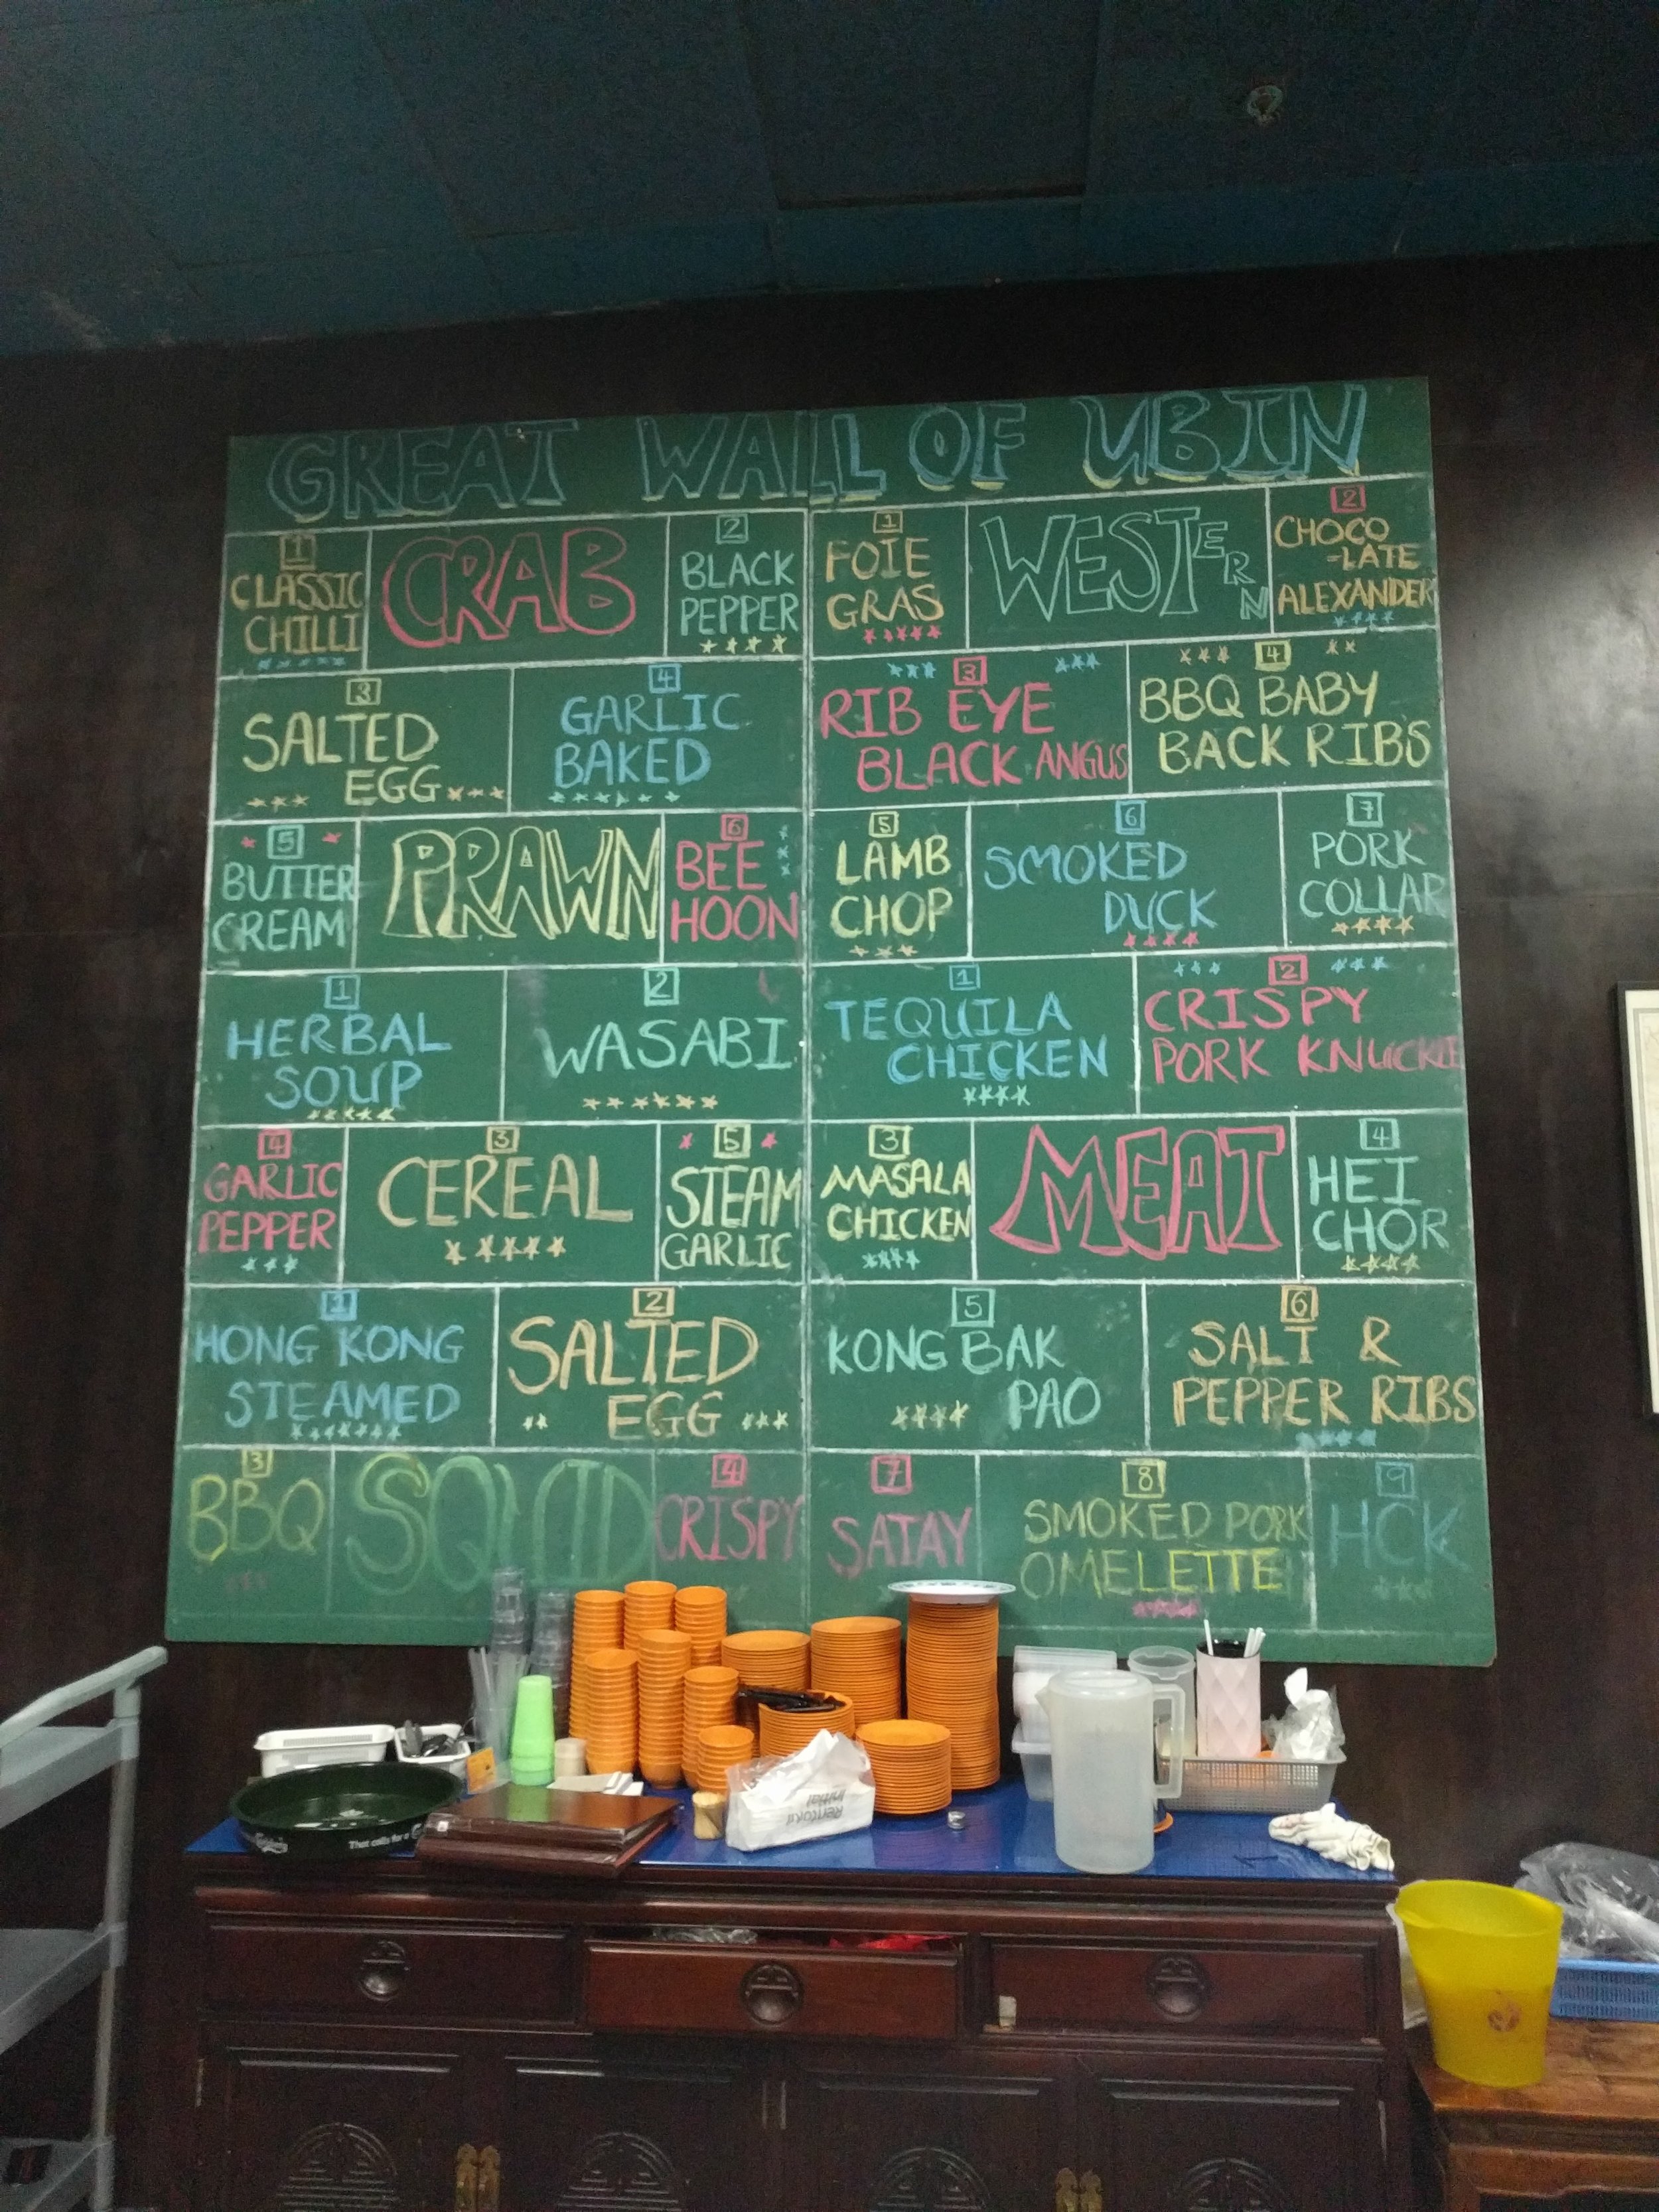 GREAT WALL OF UBIN
1
CLASSIC
CHILLI
CRAB
2
BLACK
PEPPER
3
SALTED
EGG
4
GARLIC
BAKED
5
BUTTER
CREAM
PRAWN
6
BEE
HOON
1
HERBAL
SOUP
2
WASABI
4
GARLIC
PEPPER
3
CEREAL
5
STEAM
GARLIC
1
HONG KONG
STEAMED
2
SALTED
EGG
3
BBQ
SQUID
4
CRISPY
1
FOIE
GRAS
WESTERN
2
CHOCO
=LATE
ALEXANDER
3
RIB EYE
BLACK ANGUS
4
BBQ BABY
BACK RIBS
5
LAMB
CHOP
6
SMOKED
DUCK
7
PORK
COLLAR
1
TEQUILA
CHICKEN
2
CRISPY
PORK KNUCKLE
3
MASALA
CHICKEN
MEAT
4
HEI
CHOR
5
KONG BAK
PAO
6
SALT &
PEPPER RIBS
7
SATAY
8
SMOKED PORK
OMELETTE
9
HCK
Carlsberg
That calls for a
Rentokil
Initial